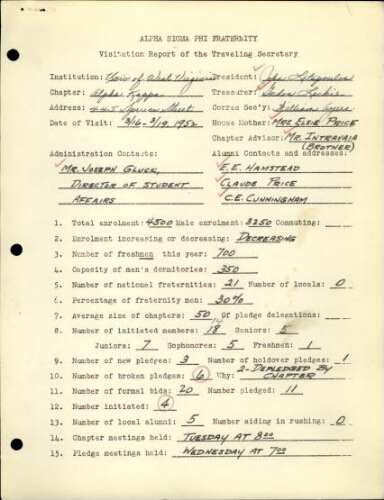 ALPHA SIGMA PHI FRATERNITY
Visitation Report of the Traveling Secretary
Institution: Univ of West Virginia President: John
Chapter: Alpha Kappa Treasurer:
Address: 445 Spruce Street Corres Sec'y: William
Date of Visit: 3/16-3/19, 1952 House Mother: MRS ELSIE PRICE
Chapter Advisor: MR. INTRAVAIA (BROTHER)
Administration Contacts: Alumni Contacts and addresses:
MR. JOSEPH GLUCK, E.E. HAMSTEAD
DIRECTOR OF STUDENT CLAUDE PRICE
AFFAIRS C.E. CUNNINGHAM
1. Total enrolment: 4500 Male enrolment: 3250 Commuting:
2. Enrolment increasing or decreasing: DECREASING
3. Number of freshmen this year: 700
4. Capacity of men's dormitories: 350
5. Number of national fraternities: 21 Number of locals: 0
6. Percentage of fraternity men: 30%
7. Average size of chapters: 50 Of pledge delegations:
8. Number of initiated members: 18 Seniors: 5
Juniors: 7 Sophomores: 5 Freshmen: 1
9. Number of new pledges: 3 Number of holdover pledges: 1
10. Number of broken pledges: 6 Why: 2-DEPLEDGED BY CHAPTER
11. Number of formal bids: 20 Number pledged: 11
12. Number initiated: 4
13. Number of local alumni: 5 Number aiding in rushing: 0
14. Chapter meetings held: TUESDAY AT 8:00
15. Pledge meetings held: WEDNESDAY AT 7:00